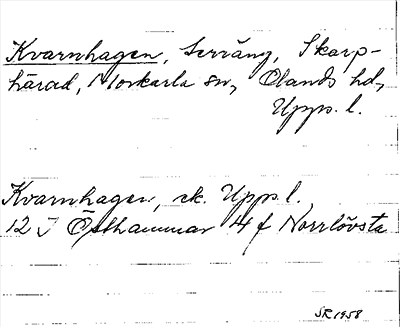 Kvarnhagen, Serräng, Skarp-
härad, Morkarla sn, Olands hd,
Upps. l.
Kvarnhagen, ek. Upps l.
12 J Östhammar 4 f Norrlövsta
SR 1958